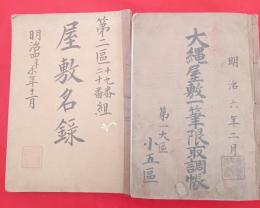 明治六年二月
大縄屋敷一筆限取調帳
第一大区
小五區
第二區
十七番
二十番
組
屋敷名録
明治
年十二月